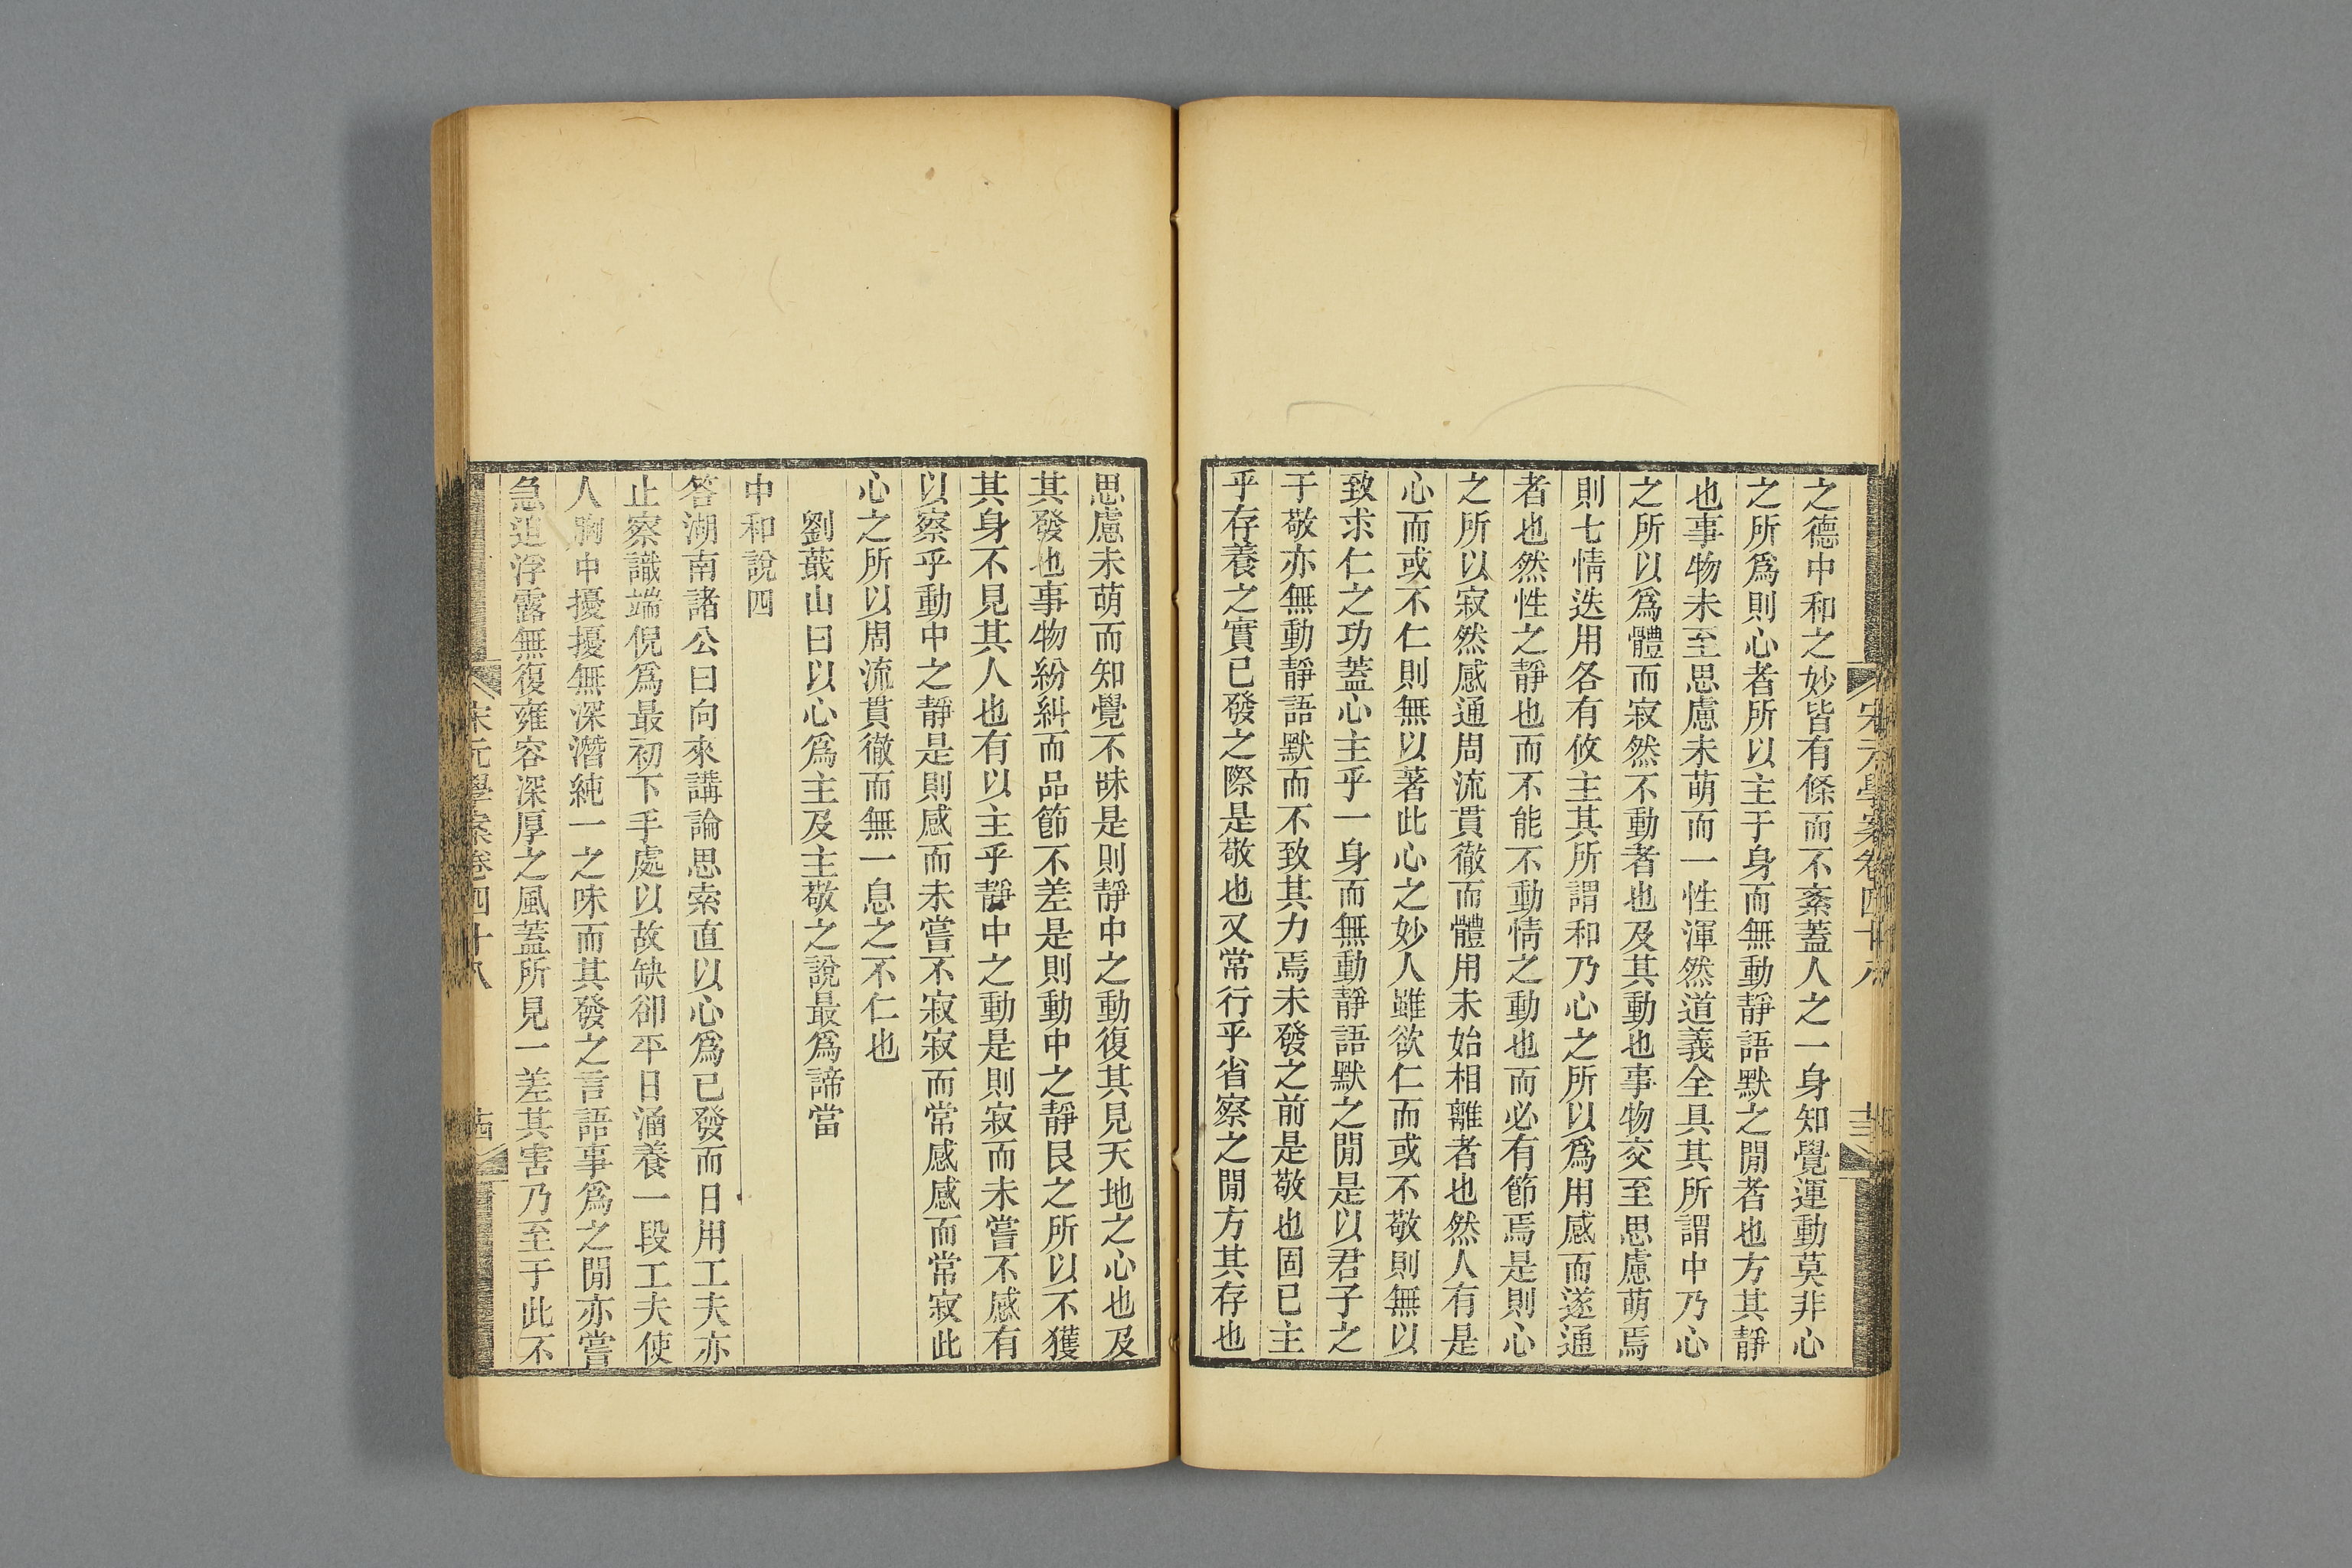 宋元學案卷四十八
之德中和之妙皆有條而不紊蓋人之一身知覺運動莫非心
之所爲則心者所以主于身而無動靜語默之閒者也方其靜
也事物未至思慮未萌而一性渾然道義全具其所謂中乃心
之所以爲體而寂然不動者也及其動也事物交至思慮萌焉
則七情迭用各有攸主其所謂和乃心之所以爲用感而遂通
者也然性之靜也而不能不動情之動也而必有節焉是則心
之所以寂然感通周流貫徹而體用未始相離者也然人有是
心而或不仁則無以著此心之妙人雖欲仁而或不敬則無以
致求仁之功蓋心主乎一身而無動靜語默之閒是以君子之
于敬亦無動靜語默而不致其力焉未發之前是敬也固已主
乎存養之實已發之際是敬也又常行乎省察之閒方其存也
思慮未萌而知覺不昧是則靜中之動復其見天地之心也及
其發也事物紛糾而品節不差是則動中之靜艮之所以不獲
其身不見其人也有以主乎靜中之動是則寂而未嘗不感有
以察乎動中之靜是則感而未嘗不寂寂而常感感而常寂此
心之所以周流貫徹而無一息之不仁也
劉蕺山曰以心爲主及主敬之說最爲諦當
中和說四
答湖南諸公曰向來講論思索直以心爲已發而日用工夫亦
止察識端倪爲最初下手處以故缺卻平日涵養一段工夫使
人胸中擾擾無深潛純一之味而其發之言語事爲之閒亦嘗
急迫浮露無復雍容深厚之風蓋所見一差其害乃至于此不
宋元學案卷四十八